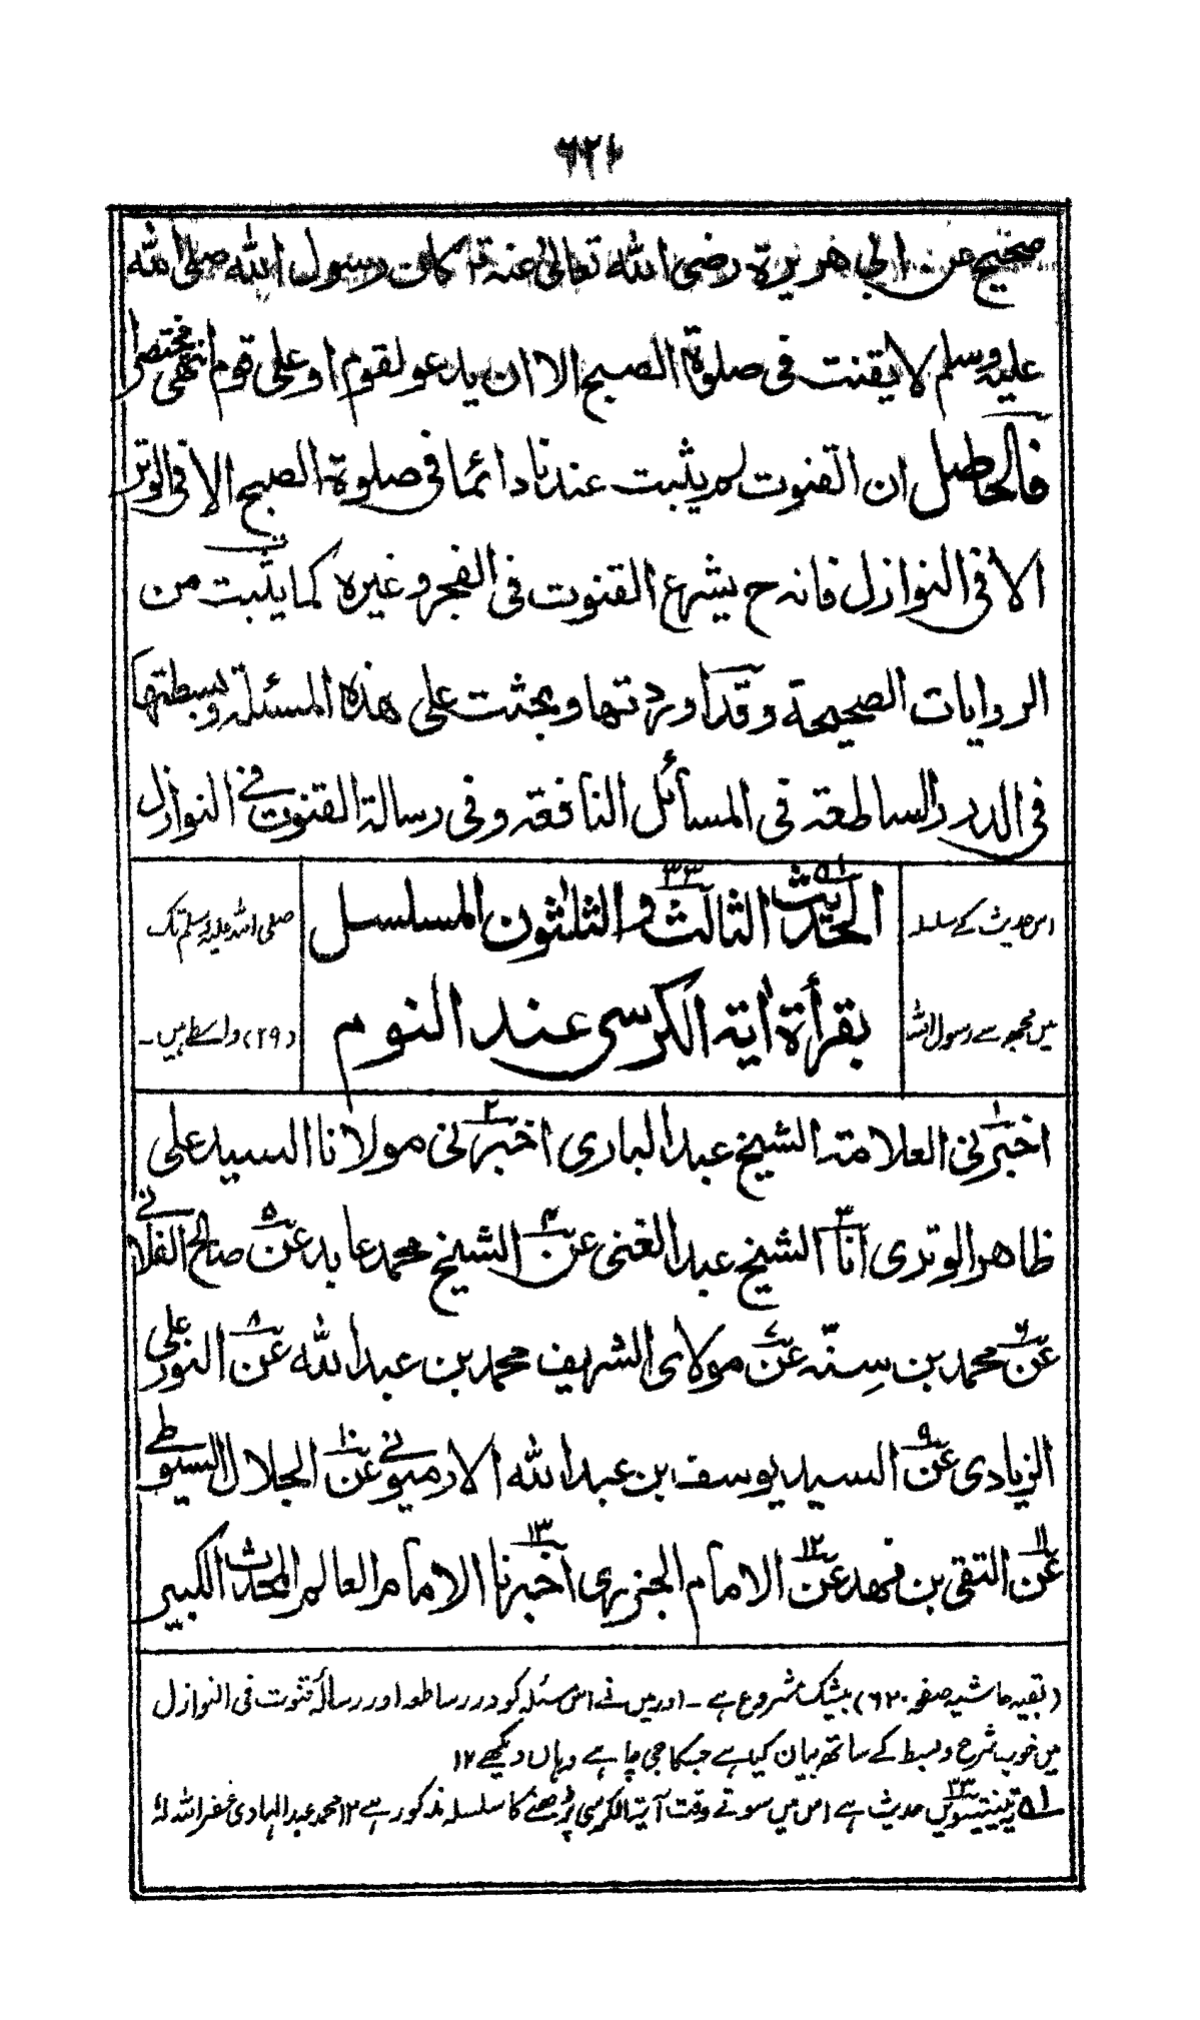 ٦٢١
صحيح عن ابي هريرة رضى الله تعالىٰ عنه قا كان رسول الله صلى الله
عليه وسلم لا يقنت فى صلوة الصبح الا ان يدعو لقوم او على قوم انتهى مختصرا
فالحاصل ان القنوت لم يثبت عندنا دائما فى صلوة الصبح الا فى الوتر
الا فى النوازل فانه ح يشرع القنوت فى الفجر وغيره كما يثبت من
الروايات الصحيحة وقد اوردتها وبحثت على هذه المسئلة وبسطتها
فى الدرر الساطعة فى المسائل النافعة وفى رسالة القنوت فى النوازل
الحديث الثالث والثلٰثون المسلسل
بقرأة اٰية الكرسى عند النوم
اس حدیث کے سلسلہ
میں مجھ سے رسول اللہ
صلی اللہ علیہ وسلم تک
(۲۹) واسطے ہیں۔
اخبرنى العلامة الشيخ عبد البارى اخبرنى مولانا السيد على
ظاهر الوترى انا الشيخ عبد الغنى عن الشيخ محمد عابد عن صالح الفلانى
عن محمد بن سِنّه عن مولاى الشريف محمد بن عبد الله عن النور على
الزيادى عن السيد يوسف بن عبد الله الارميونى عن الجلال السيوطى
عن التقى بن فهد عن الامام الجزرى اخبرنا الامام العالم المحدث الكبير
(بقیہ حاشیہ صفحہ ۶۲۰) بیشک مشروع ہے۔ اور میں نے اس مسئلہ کو درر ساطعہ اور رسالۂ قنوت فی النوازل
میں خوب شرح وبسط کے ساتھ بیان کیا ہے جسکا جی چاہے وہاں دیکھے ۱۲
۱؎ تینتیسویں حدیث ہے اس میں سوتے وقت آیۃ الکرسی پڑھنے کا سلسلہ مذکور ہے ۱۲ محمد عبد الہادی غفر اللہ لہٗ